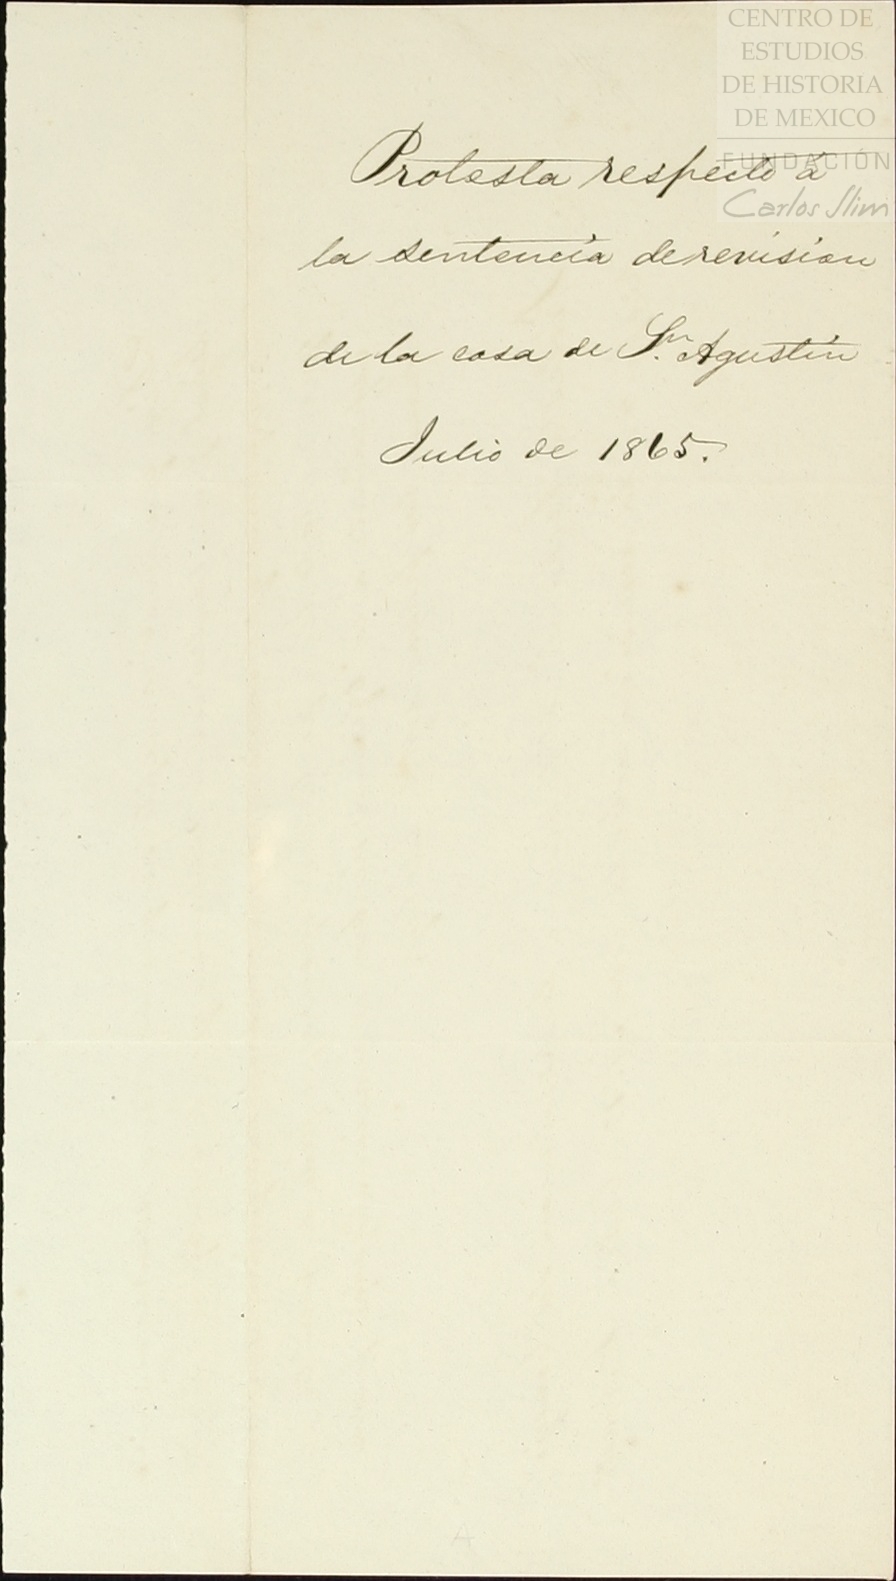 CENTRO DE
ESTUDIOS
DE HISTORIA
DE MEXICO
FUNDACIÓN
Carlos Slim
Protesta respecto á
la sentencia de revision
de la casa de Sn. Agustin
Julio de 1865.
A